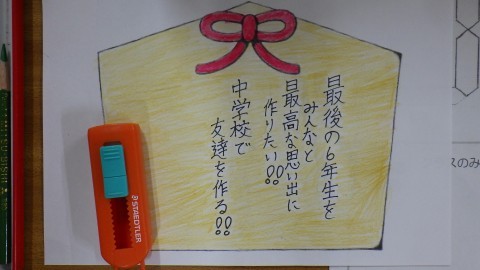 最後の6年生を
みんなと
最高な思い出に
作りたい!!
中学校で
友達を作る!!
STAEDTLER
スのみ